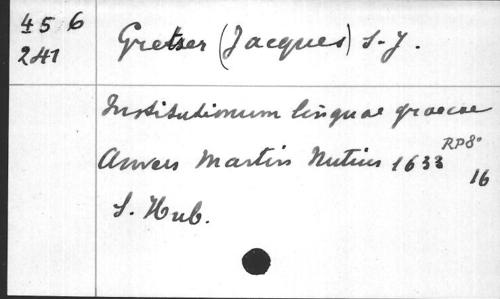 456
241
Gretser (Jacques) S.J.
Institutionum linguae graecae
Anvers Martin Nutius 1633 RP8°
16
S. Hub.